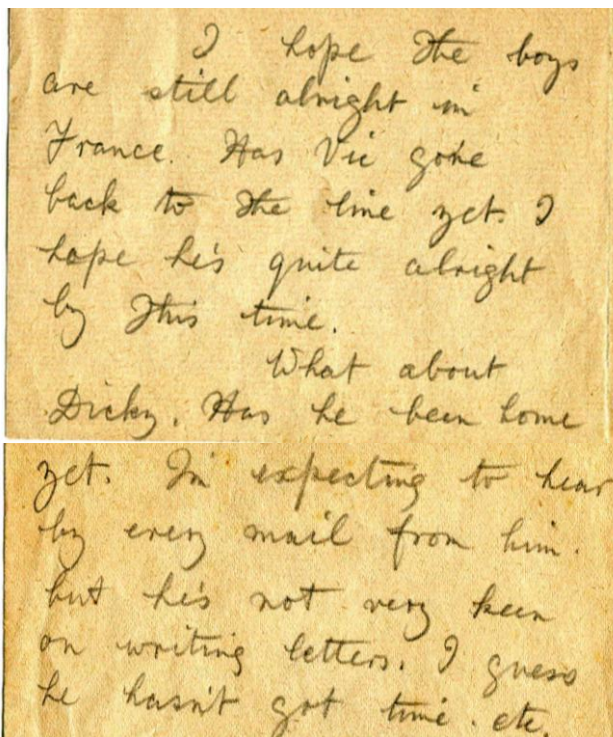 I hope the boys
are still alright in
France. Has Vic gone
back to the line yet. I
hope he's quite alright
by this time.
What about
Dicky. Has he been home
yet. I'm expecting to hear
by every mail from him.
but he's not very keen
on writing letters. I guess
he hasn't got time. etc.